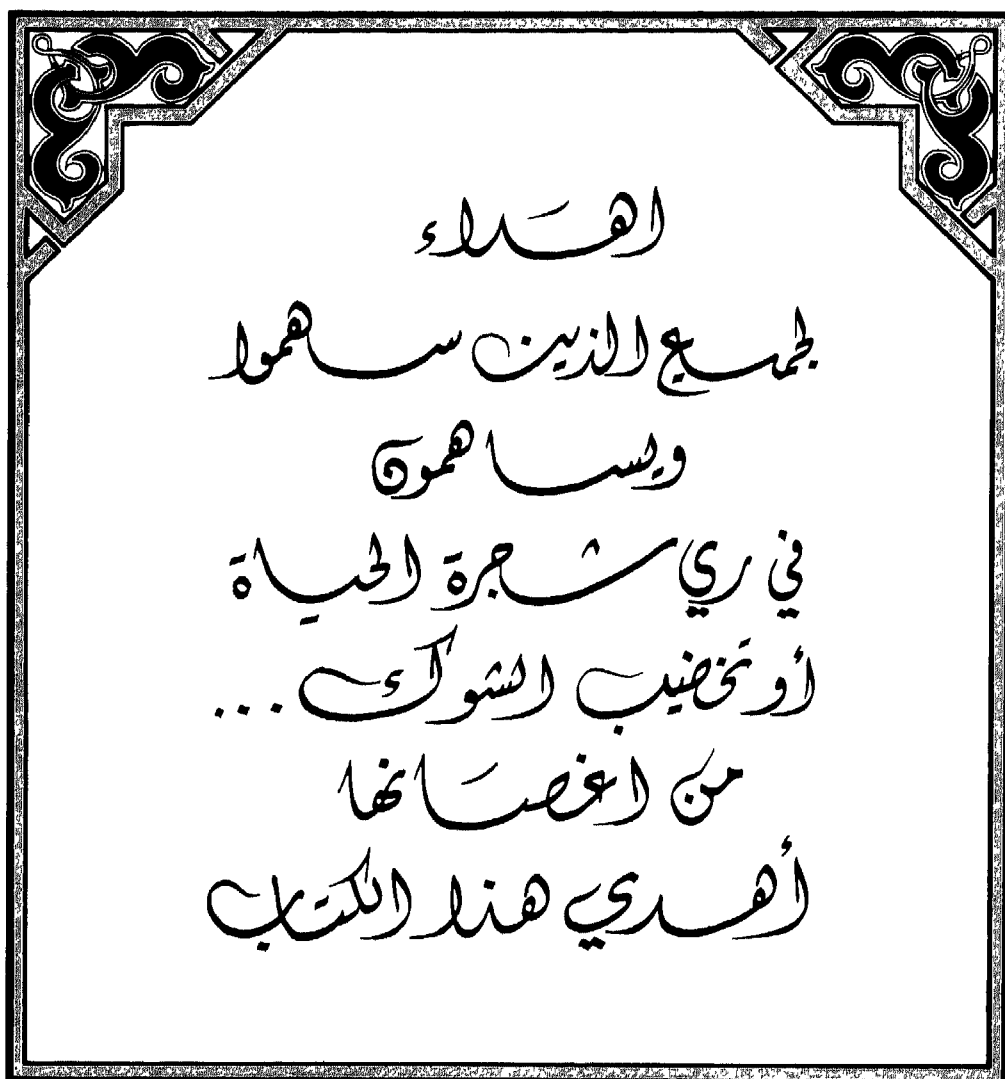 اهداء
لجميع الذين ساهموا
ويساهمون
في ري شجرة الحياة
أو تخضيب الشوك...
من اغصانها
أهدي هذا الكتاب